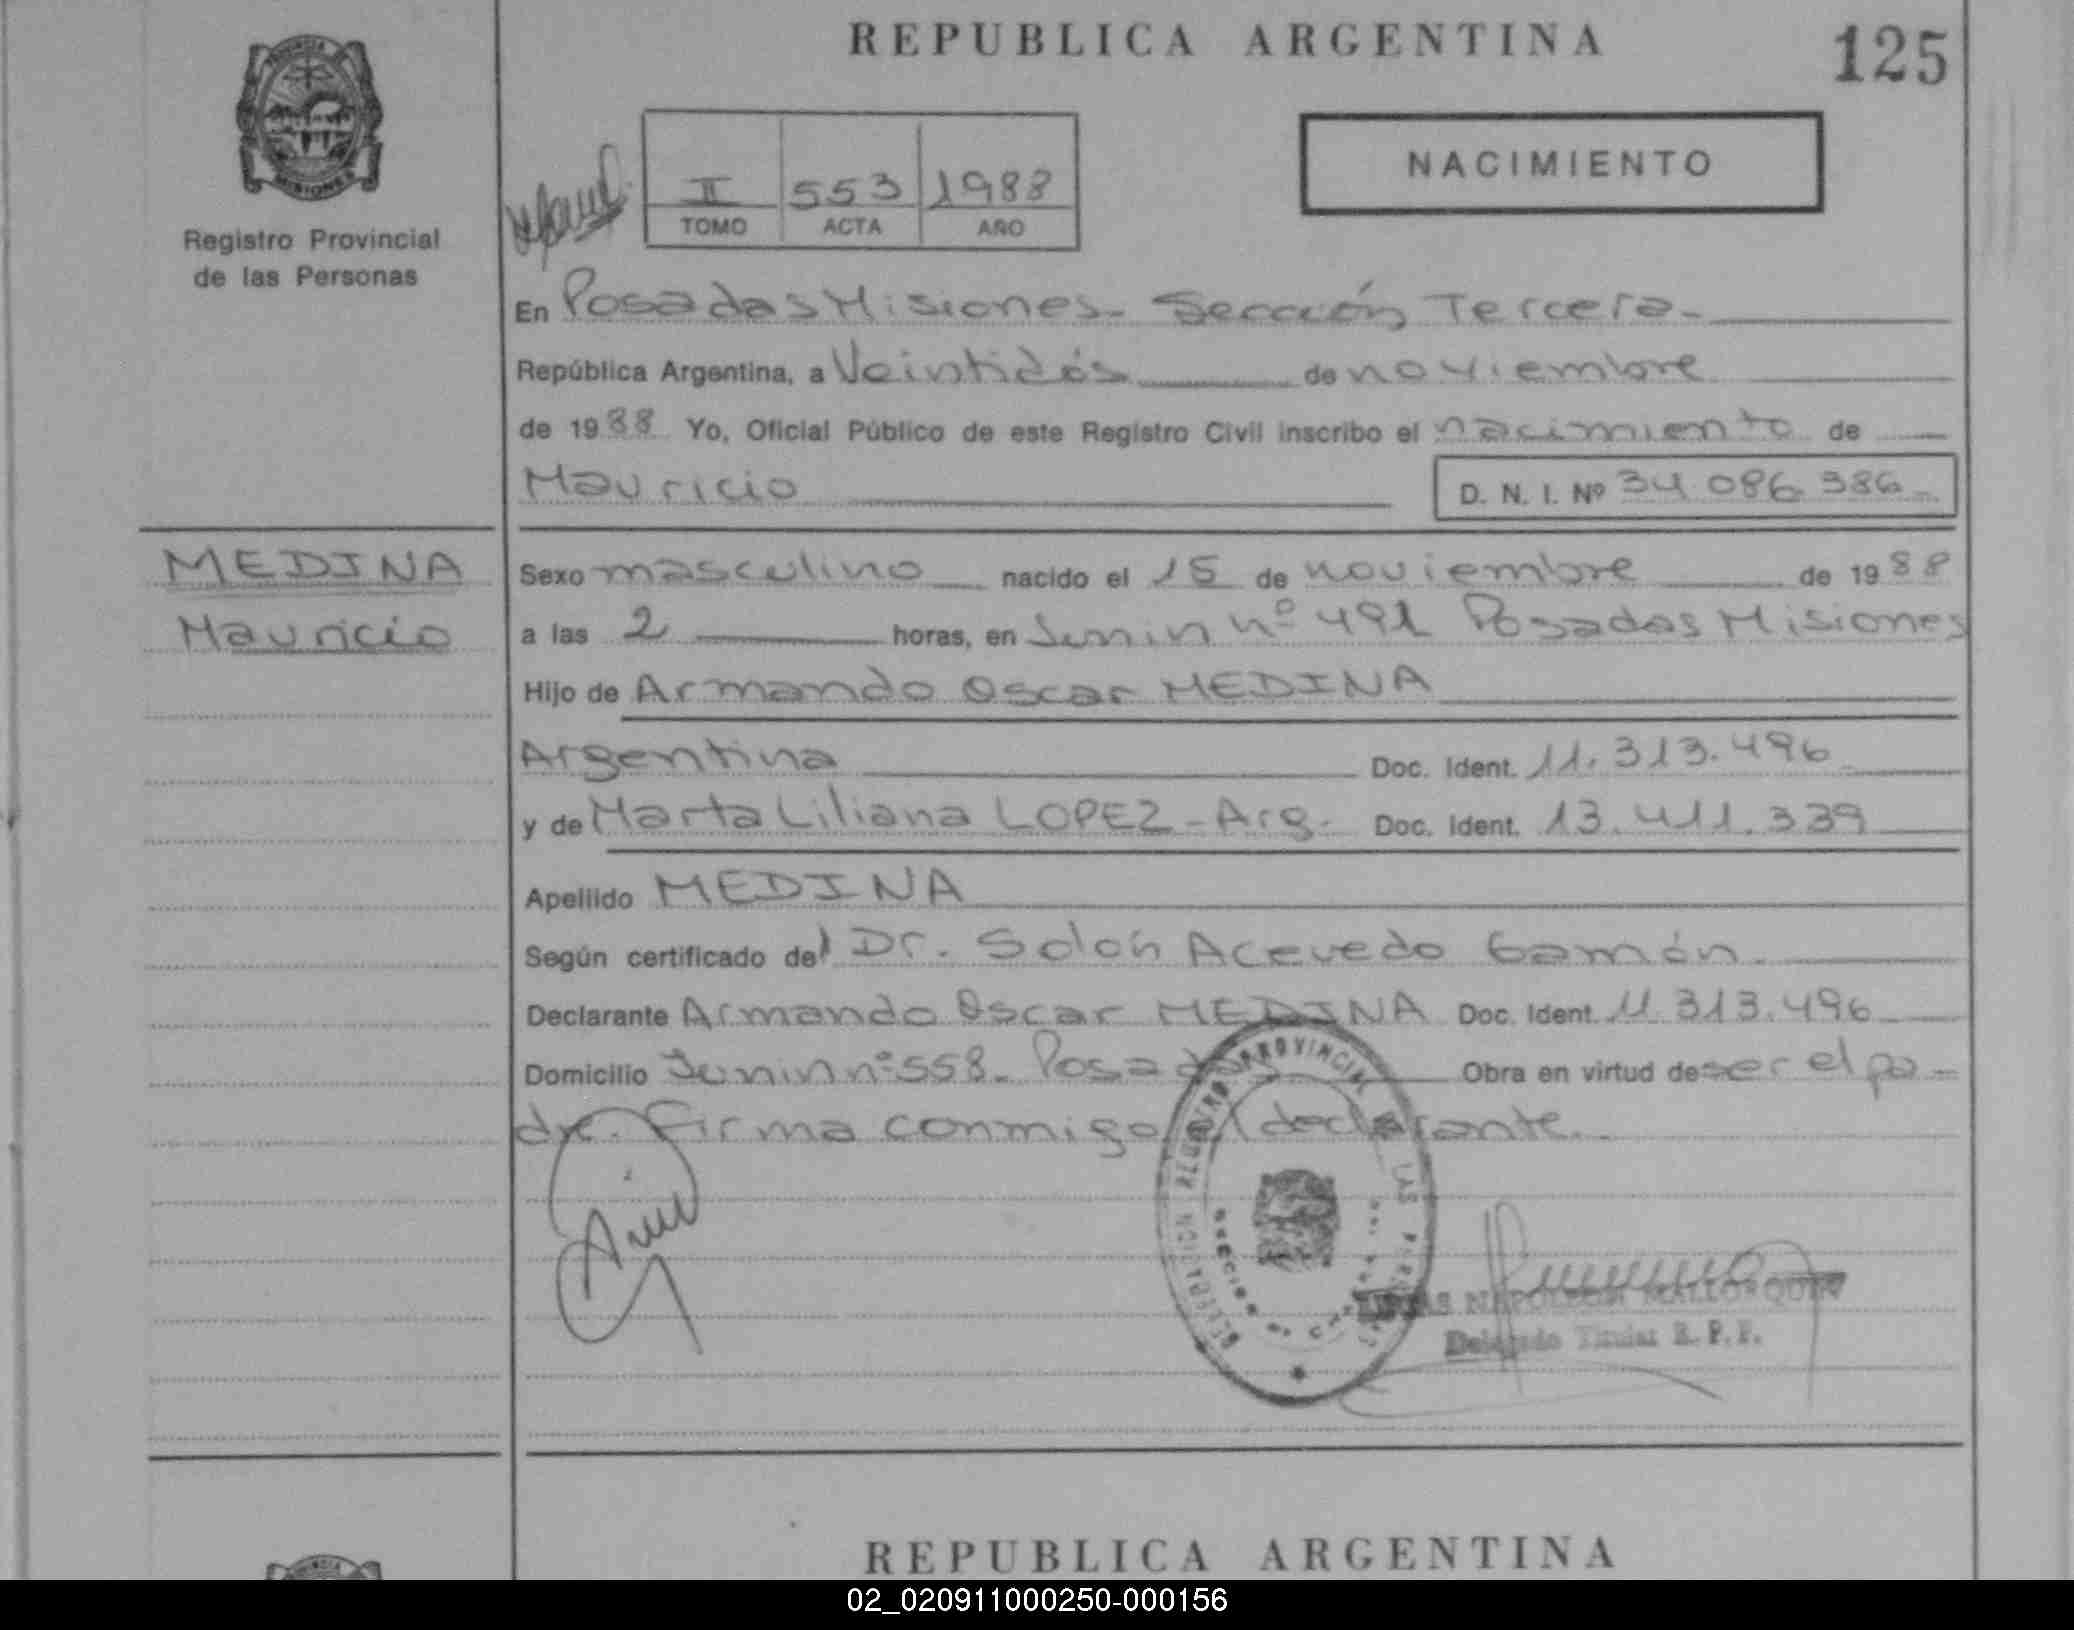 REPUBLICA ARGENTINA
125
PROVINCIA
MISIONES
Registro Provincial
de las Personas
II 553 1988
TOMO ACTA AÑO
NACIMIENTO
En Posadas Misiones - Sección Tercera -
República Argentina, a Veintidós de noviembre
de 1988 Yo, Oficial Público de este Registro Civil inscribo el nacimiento de
Mauricio
D. N. I. Nº 34 086 386 -
MEDINA
Mauricio
Sexo masculino nacido el 15 de noviembre de 1988
a las 2 horas, en Junin nº 491 Posadas Misiones
Hijo de Armando Oscar MEDINA
Argentina Doc. Ident. 11.313.496
y de Marta Liliana LOPEZ - Arg. Doc. Ident. 13.411.339
Apellido MEDINA
Según certificado del Dr. Solón Acevedo Gamón
Declarante Armando Oscar MEDINA Doc. Ident. 11.313.496
Domicilio Junin nº 558 - Posadas Obra en virtud de ser el pa-
dre. Firma conmigo el declarante.
REGISTRO PROVINCIAL DE LAS PERSONAS
NAPOLEON MALLORQUIN
Delegado Titular R. P. P.
REPUBLICA ARGENTINA
02_020911000250-000156